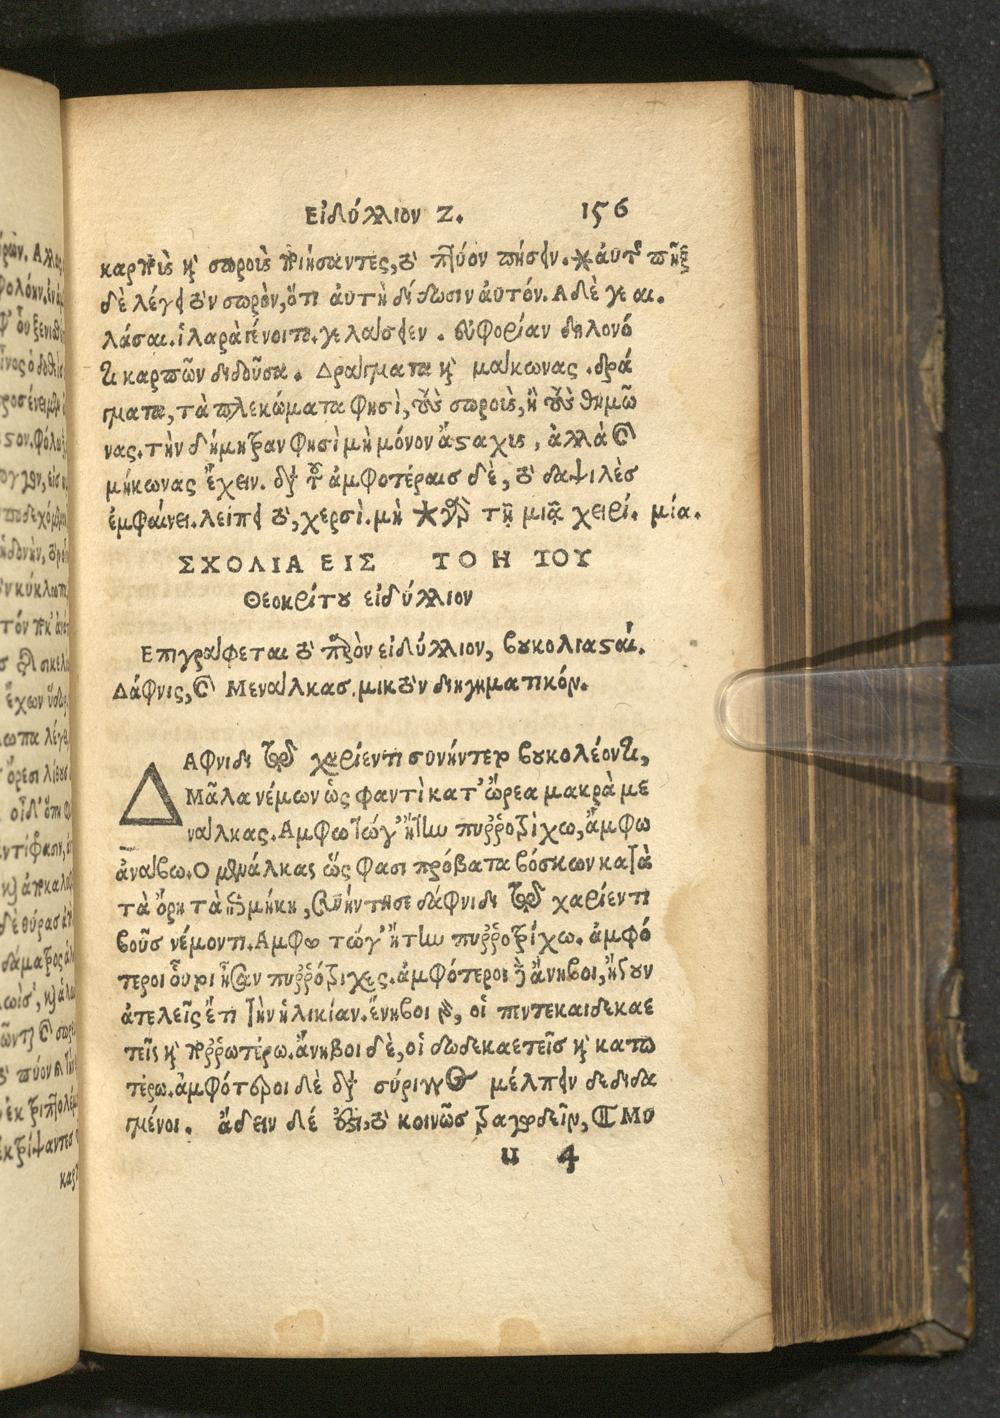 Εἰδύλλιον Ζ. 156
καρποὺς καὶ σωροὺς ποιήσαντες, τὸ πτύον πήσειν. αὐτὰρ πῆξαι
δὲ λέγει τὸν σωρὸν, ὅτι ἀυτὴ δίδωσιν ἀυτόν. Α δὲ γε αι.
λάσαι. ἱλαρὰ γένοιτο. γελάσειεν. εὐφορίαν δηλονό
τι καρπῶν διδοῦσα. Δράγματα καὶ μάκωνας. δρά
γματα, τὰ πλεκώματα φησὶ, τοὺς σωροὺς, ἢ τοὺς θημῶ
νας. τὴν δήμητραν φησὶ μὴ μόνον ἄσταχυς, ἀλλὰ καὶ
μήκωνας ἔχειν. διὰ τοῦ ἀμφοτέραισ δὲ, τὸ δαψιλὲς
ἐμφαίνει. λείπει τὸ, χερσὶ. μὴ γὰρ τῇ μιᾷ χειρί. μία.
ΣΧΟΛΙΑ ΕΙΣ ΤΟ Η ΤΟΥ
Θεοκρίτου εἰδύλλιον
Επιγράφεται τὸ παρὸν εἰδύλλιον, βουκολιασταί.
Δάφνις, καὶ Μενάλκασ. μικτὸν διηγηματικόν.
ΔΑφνιδι τῷ χαρίεντι συνήντετο βουκολέοντι,
Μᾶλα νέμων ὡς φαντὶ κατ' ὤρεα μακρὰ με
νάλκας. Αμφω τώγ' ἤτην πυῤῥοτρίχω, ἄμφω
ἀνάβω. Ο μενάλκας ὥς φασι πρόβατα βόσκων κατὰ
τὰ ὄρη τὰ ἐπιμήκη, συνήντησε δάφνιδι τῷ χαρίεντι
βοῦς νέμοντι. Αμφω τώγ' ἤτην πυῤῥοτρίχω. ἀμφό
τεροι οὗτοι ἦσαν πυῤῥότριχες. ἀμφότεροι δὲ ἄνηβοι, ἤγουν
ἀτελεῖς ἔτι τὴν ἡλικίαν. ἔνηβοι γὰρ, οἱ πεντεκαιδεκαε
τεῖς καὶ ποῤῥωτέρω. ἄνηβοι δὲ, οἱ δωδεκαετεῖσ καὶ κατω
τέρω. ἀμφότεροι δὲ διὰ σύριγγος μέλπειν δεδιδα
γμένοι. ἄδειν δέ ἐστι, τὸ κοινῶσ τραγῳδεῖν, καὶ Μο
u 4